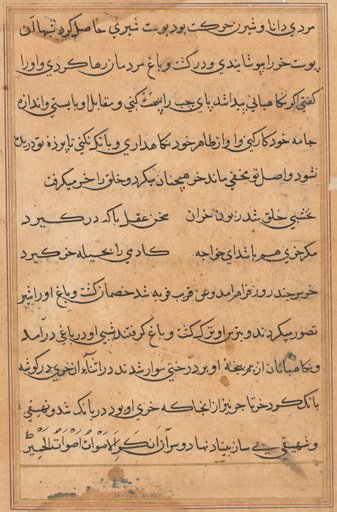 مردی دانا و شیرز حرکت بود پوست شیری حاصل کرد شبها آن
پوست خر را پوشانیدی و در کشت و باغ مردمان رها کردی و او را
کفتی اکر نکاهبانی پیدا شد پای چپ را کنی و مقابل او بایستی و اندازه
جامه خود کار کنی و آواز ظاهر خود نکاهداری و بانک نکنی تا پرده تو دریده
نشود و اصل تو مخفی ماند خر همچنان میکرد و خلق را خر میکرفت
نخشبی خلق شد زبون خران سخن عقل با که در کیرد
مکر خری هم باشدای خواجه کادمی را بحیله خر کیرد
خر بر چند روز فراهم آمد و عن قریب فربه شد خصمان کشت و باغ او را شیر
تصور میکردند و بترس او ترک کشت و باغ کرفتند شبی او در باغی درآمد
و نکاهبانان از بیم او بر درختی سوار شدند در اثناء آن خری در کوشه
بانک کرد خر تاجر نیز از آنجا که خری او بود در بانک شد و نهیقی
و شهیقی بی ساز بنیاد نهاد و سر آن اَنکَرَ الاَصواتِ لَصَوتُ الحَمِیر